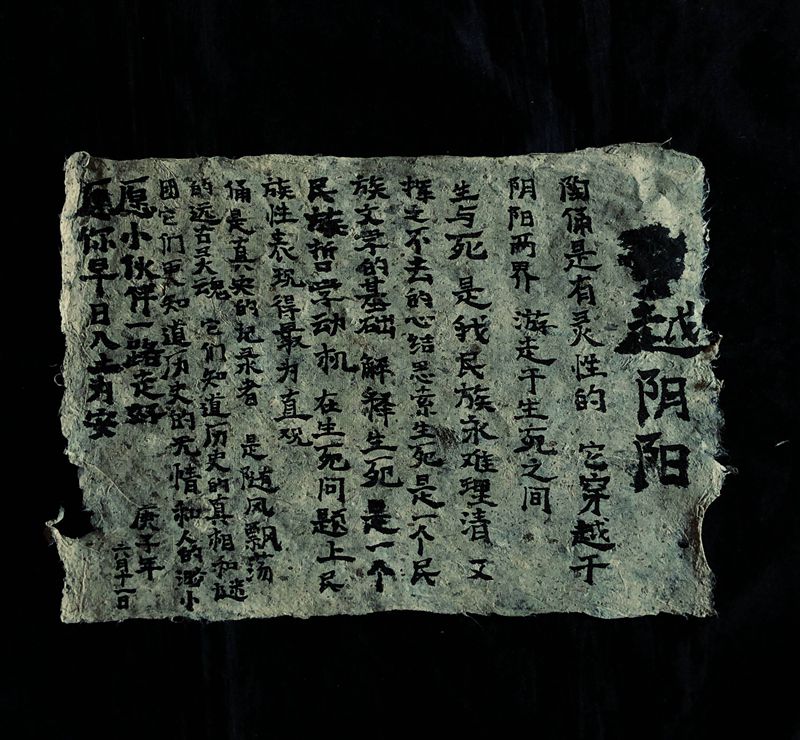 越阴阳
陶俑是有灵性的 它穿越于
阴阳两界 游走于生死之间
生与死 是我民族永难理清 又
挥之不去的心结思索生死是一个民
族文学的基础 解释生死是一个
民族哲学动机 在生死问题上民
族性表现得最为直观
俑是真实的记录者 是随风飘荡
的远古灵魂 它们知道历史的真相和谜
团它们更知道历史的无情和人的渺小
愿小伙伴一路走好
愿你早日入土为安
庚子年
六月十一日